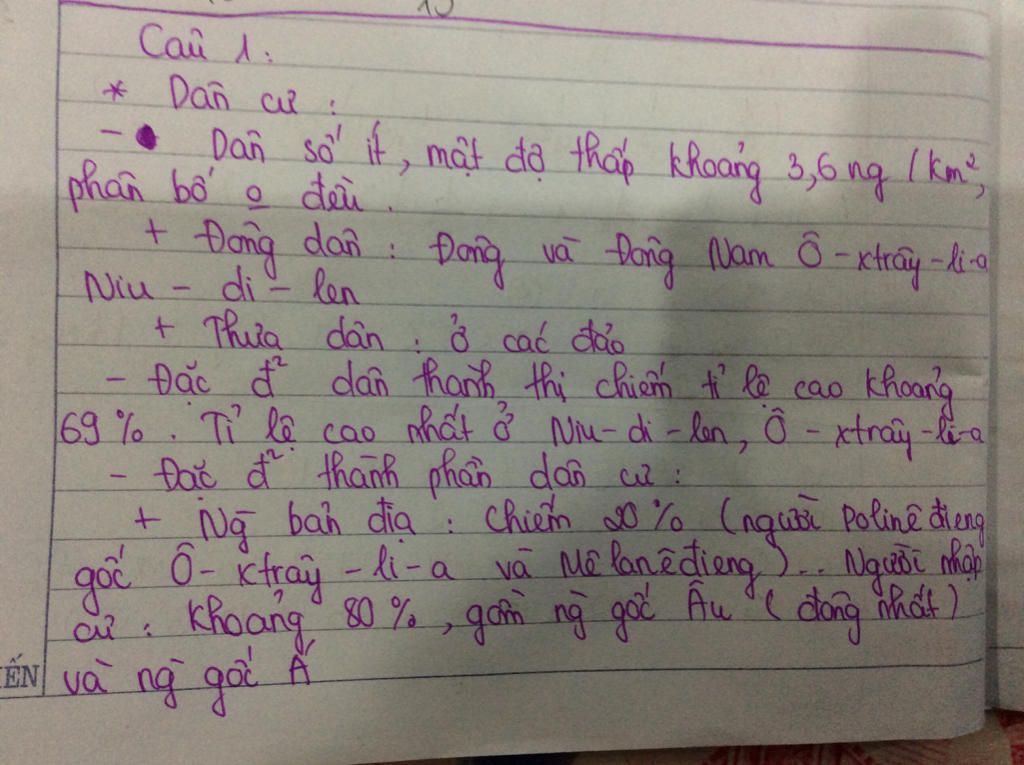 Câu 1:
* Dân cư :
- Dân số ít, mật độ thấp khoảng 3,6 ng /km²,
phân bố o đều.
+ Đông dân : Đông và Đông Nam Ô-xtrây-li-a
Niu - di - len
+ Thưa dân : ở các đảo
- Đặc đ² dân thành thị chiếm tỉ lệ cao khoảng
69%. Tỉ lệ cao nhất ở Niu-di-len, Ô-xtrây-li-a
- Đặc đ² thành phần dân cư :
+ Ng bản địa : chiếm 20% (người Polinêđieng
gốc Ô-xtrây-li-a và Mêlanêđieng)... Người nhập
cư : khoảng 80%, gồm ng gốc Âu (đông nhất)
và ng gốc Á
ẾN